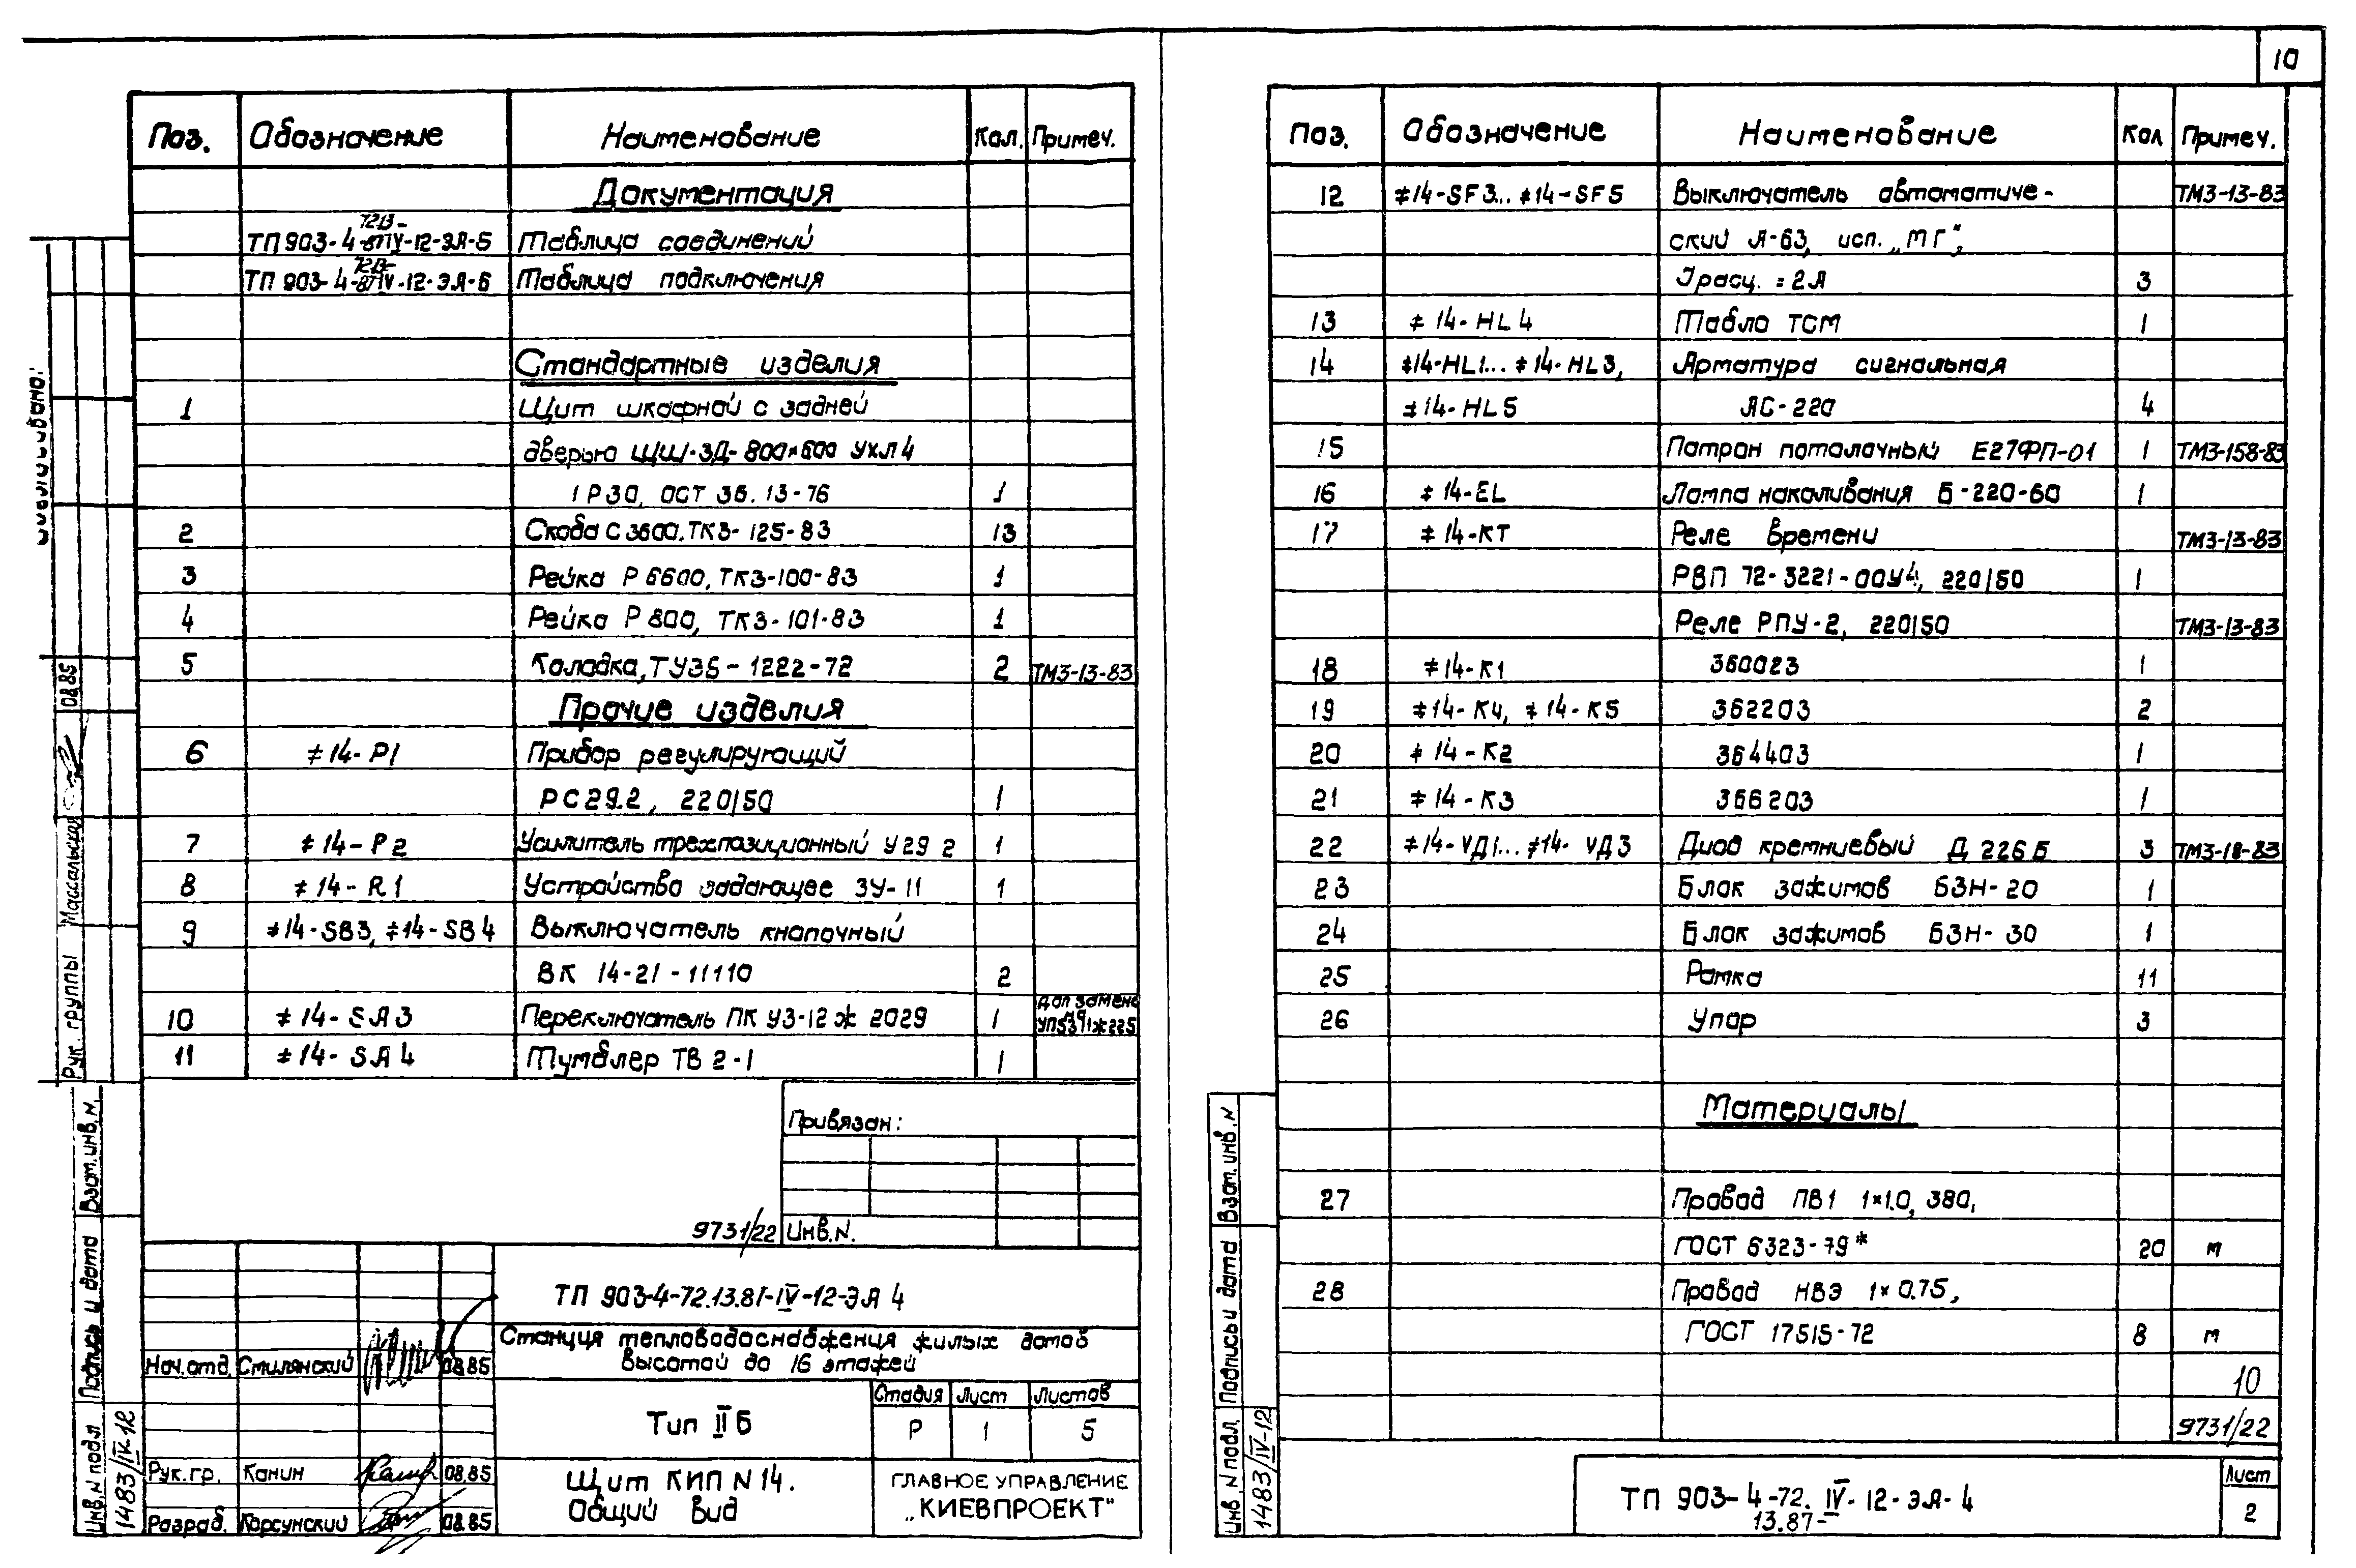 10
Поз. Обозначение Наименование Кол. Примеч.
Документация
72.13-
ТП 903-4-87IV-12-ЭА-5 Таблица соединений
72.13-
ТП 903-4-87IV-12-ЭА-6 Таблица подключения
Стандартные изделия
1 Щит шкафной с задней
дверью ЩШ-ЗД-800×600 УХЛ4
IP30, ОСТ 36.13-76 1
2 Скоба С3600.ТК3-125-83 13
3 Рейка Р6600, ТК3-100-83 1
4 Рейка Р800, ТК3-101-83 1
5 Колодка, ТУ36-1222-72 2 ТМ3-13-83
Прочие изделия
6 ≠14-P1 Прибор регулирующий
РС29.2, 220/50 1
7 ≠14-P2 Усилитель трехпозиционный У29 2 1
8 ≠14-R1 Устройство задающее ЗУ-11 1
9 ≠14-SB3, ≠14-SB4 Выключатель кнопочный
ВК 14-21-11110 2
10 ≠14-SA3 Переключатель ПК УЗ-12Ж 2029 1 доп замена
на
УП5391Ж225
11 ≠14-SA4 Тумблер ТВ 2-1 1
Привязан:
9731/22 Инв.N.
ТП 903-4-72.13.87-IV-12-ЭА 4
Станция тепловодоснабжения жилых домов
высотой до 16 этажей
Нач.отд. Стилянский 08.85
Тип IIБ
Стадия Лист Листов
Р 1 5
Рук.гр. Канин 08.85
Разраб. Корсунский 08.85
Щит КИП N14.
Общий вид
ГЛАВНОЕ УПРАВЛЕНИЕ
„КИЕВПРОЕКТ"
Рук. группы Массальская 08.85
Взам.инв.N.
Подпись и дата
Инв.N подл. 1483/IV-12
Поз. Обозначение Наименование Кол Примеч.
12 ≠14-SF3...≠14-SF5 Выключатель автоматиче- ТМ3-13-83
ский А-63, исп. „МГ",
Iрасц. = 2А 3
13 ≠14-HL4 Табло ТСМ 1
14 ≠14-HL1...≠14-HL3, Арматура сигнальная
≠14-HL5 АС-220 4
15 Патрон потолочный Е27ФП-01 1 ТМ3-158-83
16 ≠14-EL Лампа накаливания Б-220-60 1
17 ≠14-KT Реле времени ТМ3-13-83
РВП 72-3221-00У4, 220/50 1
Реле РПУ-2, 220/50 ТМ3-13-83
18 ≠14-K1 360023 1
19 ≠14-K4, ≠14-K5 362203 2
20 ≠14-K2 364403 1
21 ≠14-K3 366203 1
22 ≠14-VД1...≠14-VД3 Диод кремниевый Д 226 Б 3 ТМ3-18-83
23 Блок зажимов БЗН-20 1
24 Блок зажимов БЗН-30 1
25 Рамка 11
26 Упор 3
Материалы
27 Провод ПВ1 1×1.0, 380,
ГОСТ 6323-79* 20 м
28 Провод НВЭ 1×0.75,
ГОСТ 17515-72 8 м
10
9731/22
ТП 903-4-72. IV-12-ЭА-4
13.87-
Лист
2
Взам.инв.N
Подпись и дата
Инв.N подл. 1483/IV-12